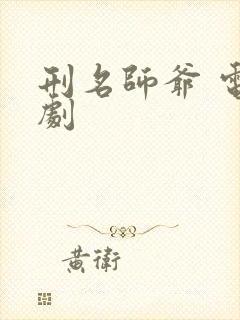 刑名師爺 電
劇
黃衛